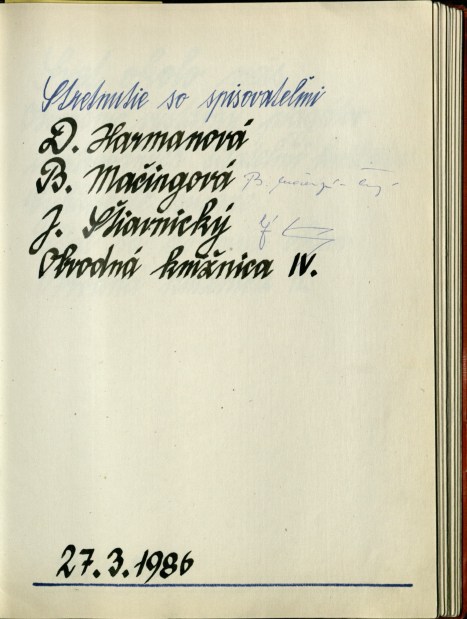 Stretnutie so spisovateľmi
D. Harmanová
B. Mačingová
J. Štiavnický
Obvodná knižnica IV.
27.3.1986